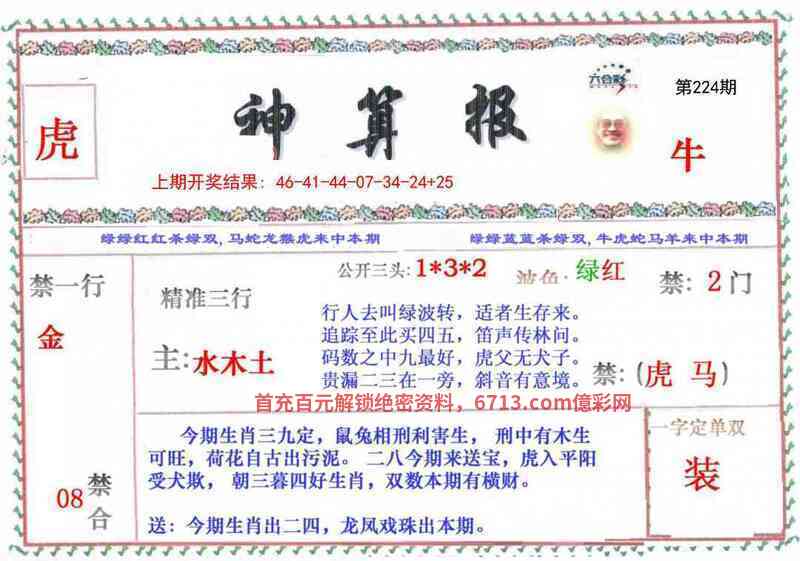 神算报
六合彩
第224期
虎
牛
上期开奖结果：46-41-44-07-34-24+25
绿绿红红杀绿双，马蛇龙猴虎来中本期
绿绿蓝蓝杀绿双，牛虎蛇马羊来中本期
禁一行
金
08
禁合
精准三行
主：水木土
公开三头：1*3*2
波色：绿红
禁：2门
行人去叫绿波转，适者生存来。
追踪至此买四五，笛声传林问。
码数之中九最好，虎父无犬子。
贵漏二三在一旁，斜音有意境。
禁：(虎 马)
首充百元解锁绝密资料，6713.com億彩网
今期生肖三九定，鼠兔相刑利害生， 刑中有木生
可旺，荷花自古出污泥。 二八今期来送宝，虎入平阳
受犬欺， 朝三暮四好生肖，双数本期有横财。
送：今期生肖出二四，龙凤戏珠出本期。
一字定单双
装